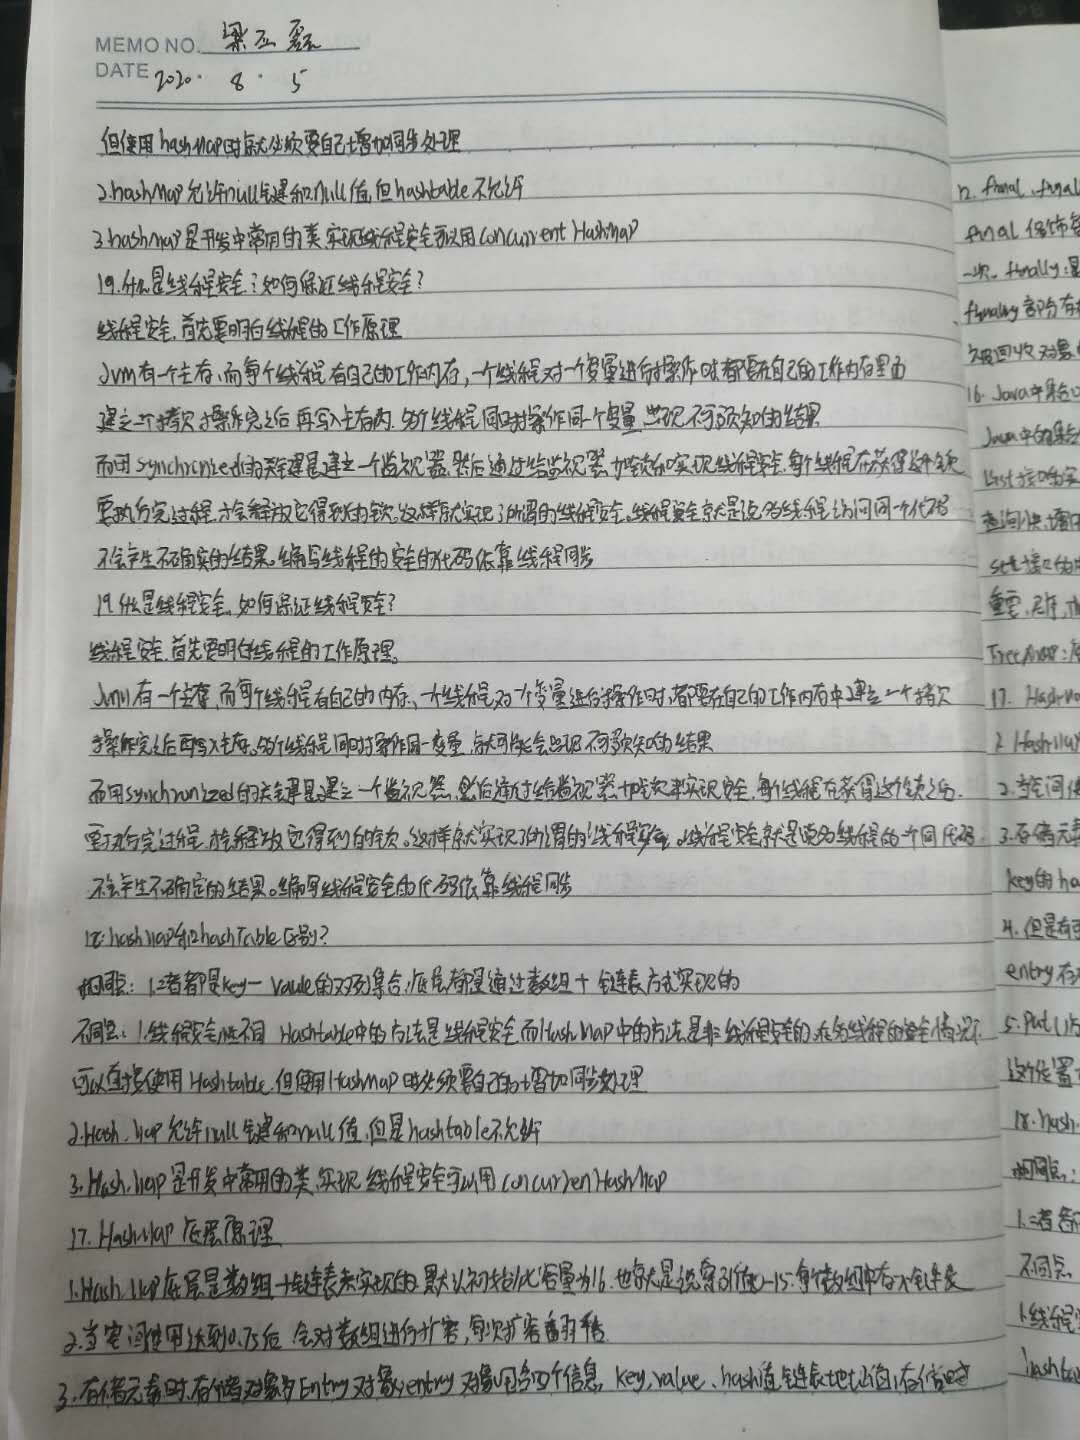 MEMO NO. 梁
DATE 2020. 8. 5
但使用hashMap时就必须要自己增加同步处理
2.hashMap允许null键和null值,但hashtable不允许
3.hashMap是开发中常用的类,实现线程安全可以用ConcurrentHashMap
19.什么是线程安全?如何保证线程安全?
线程安全,首先要明白线程的工作原理
Jvm有一个主存,而每个线程有自己的工作内存,一个线程对一个变量进行操作时都要在自己的工作内存里面
建立一个拷贝,操作完之后再写入主存内,多个线程同时操作同一个变量,出现不可预知的结果
而用synchronized的关键是建立一个监视器,然后通过给监视器加锁来实现线程安全,每个线程在获得这个锁
要执行完过程,才会释放它得到的锁,这样就实现了所谓的线程安全。线程安全就是说多线程访问同一个代码
不会产生不确实的结果。编写线程的安全的代码依靠线程同步
19.什么是线程安全,如何保证线程安全?
线程安全,首先要明白线程的工作原理。
Jvm有一个主存,而每个线程有自己的内存,一个线程对一个变量进行操作时,都要在自己的工作内存中建立一个拷贝
操作完之后再写入主存,多个线程同时操作同一变量,就可能会出现不可预知的结果
而用synchronized的关键是建立一个监视器,然后通过给监视器加锁来实现安全,每个线程在获得这个锁之后.
要执行完过程,才会释放它得到的锁。这样就实现了所谓的线程安全。线程安全就是说多线程的一个同代码.
不会产生不确定的结果。编写线程安全的代码依靠线程同步
18.hashMap和hashTable区别?
相同点:1.二者都是key-vaule的双列集合,底层都是通过数组+链表方式实现的
不同点:1.线程安全性不同 Hashtable中的方法是线程安全,而HashMap中的方法是非线程安全的,在多线程的安全情况下
可以直接使用Hashtable,但使用HashMap时必须要自己的增加同步处理
2.HashMap允许null键和null值,但是hashtable不允许
3.HashMap是开发中常用的类,实现线程安全可以用ConcurrenHashMap
17.HashMap底层原理
1.HashMap底层是数组+链表来实现的,默认认初始化容量为16.也就是说索引值0-15.每个数组中存入链表
2.当空间使用达到0.75后,会对数组进行扩容,每次扩容
3.存储元素时,存储对象为Entry对象,entry对象包含四个信息,key,value、hash值,链表地址值,存储时
12. final. final
final 修饰
一次. finally:是
finally部分存
被回收对象
16.Java中集合
Java中的集合
List接口
查询快,增
set接口的
重复,无序,
TreeMap:
17. HashMap
1. HashMap
2.当空间使
3.存储元素
key的ha
4.但是有
entry存
5.Put()
这个位置
18.hash.
相同点:
1.二者都
不同点.
1.线程
hashta